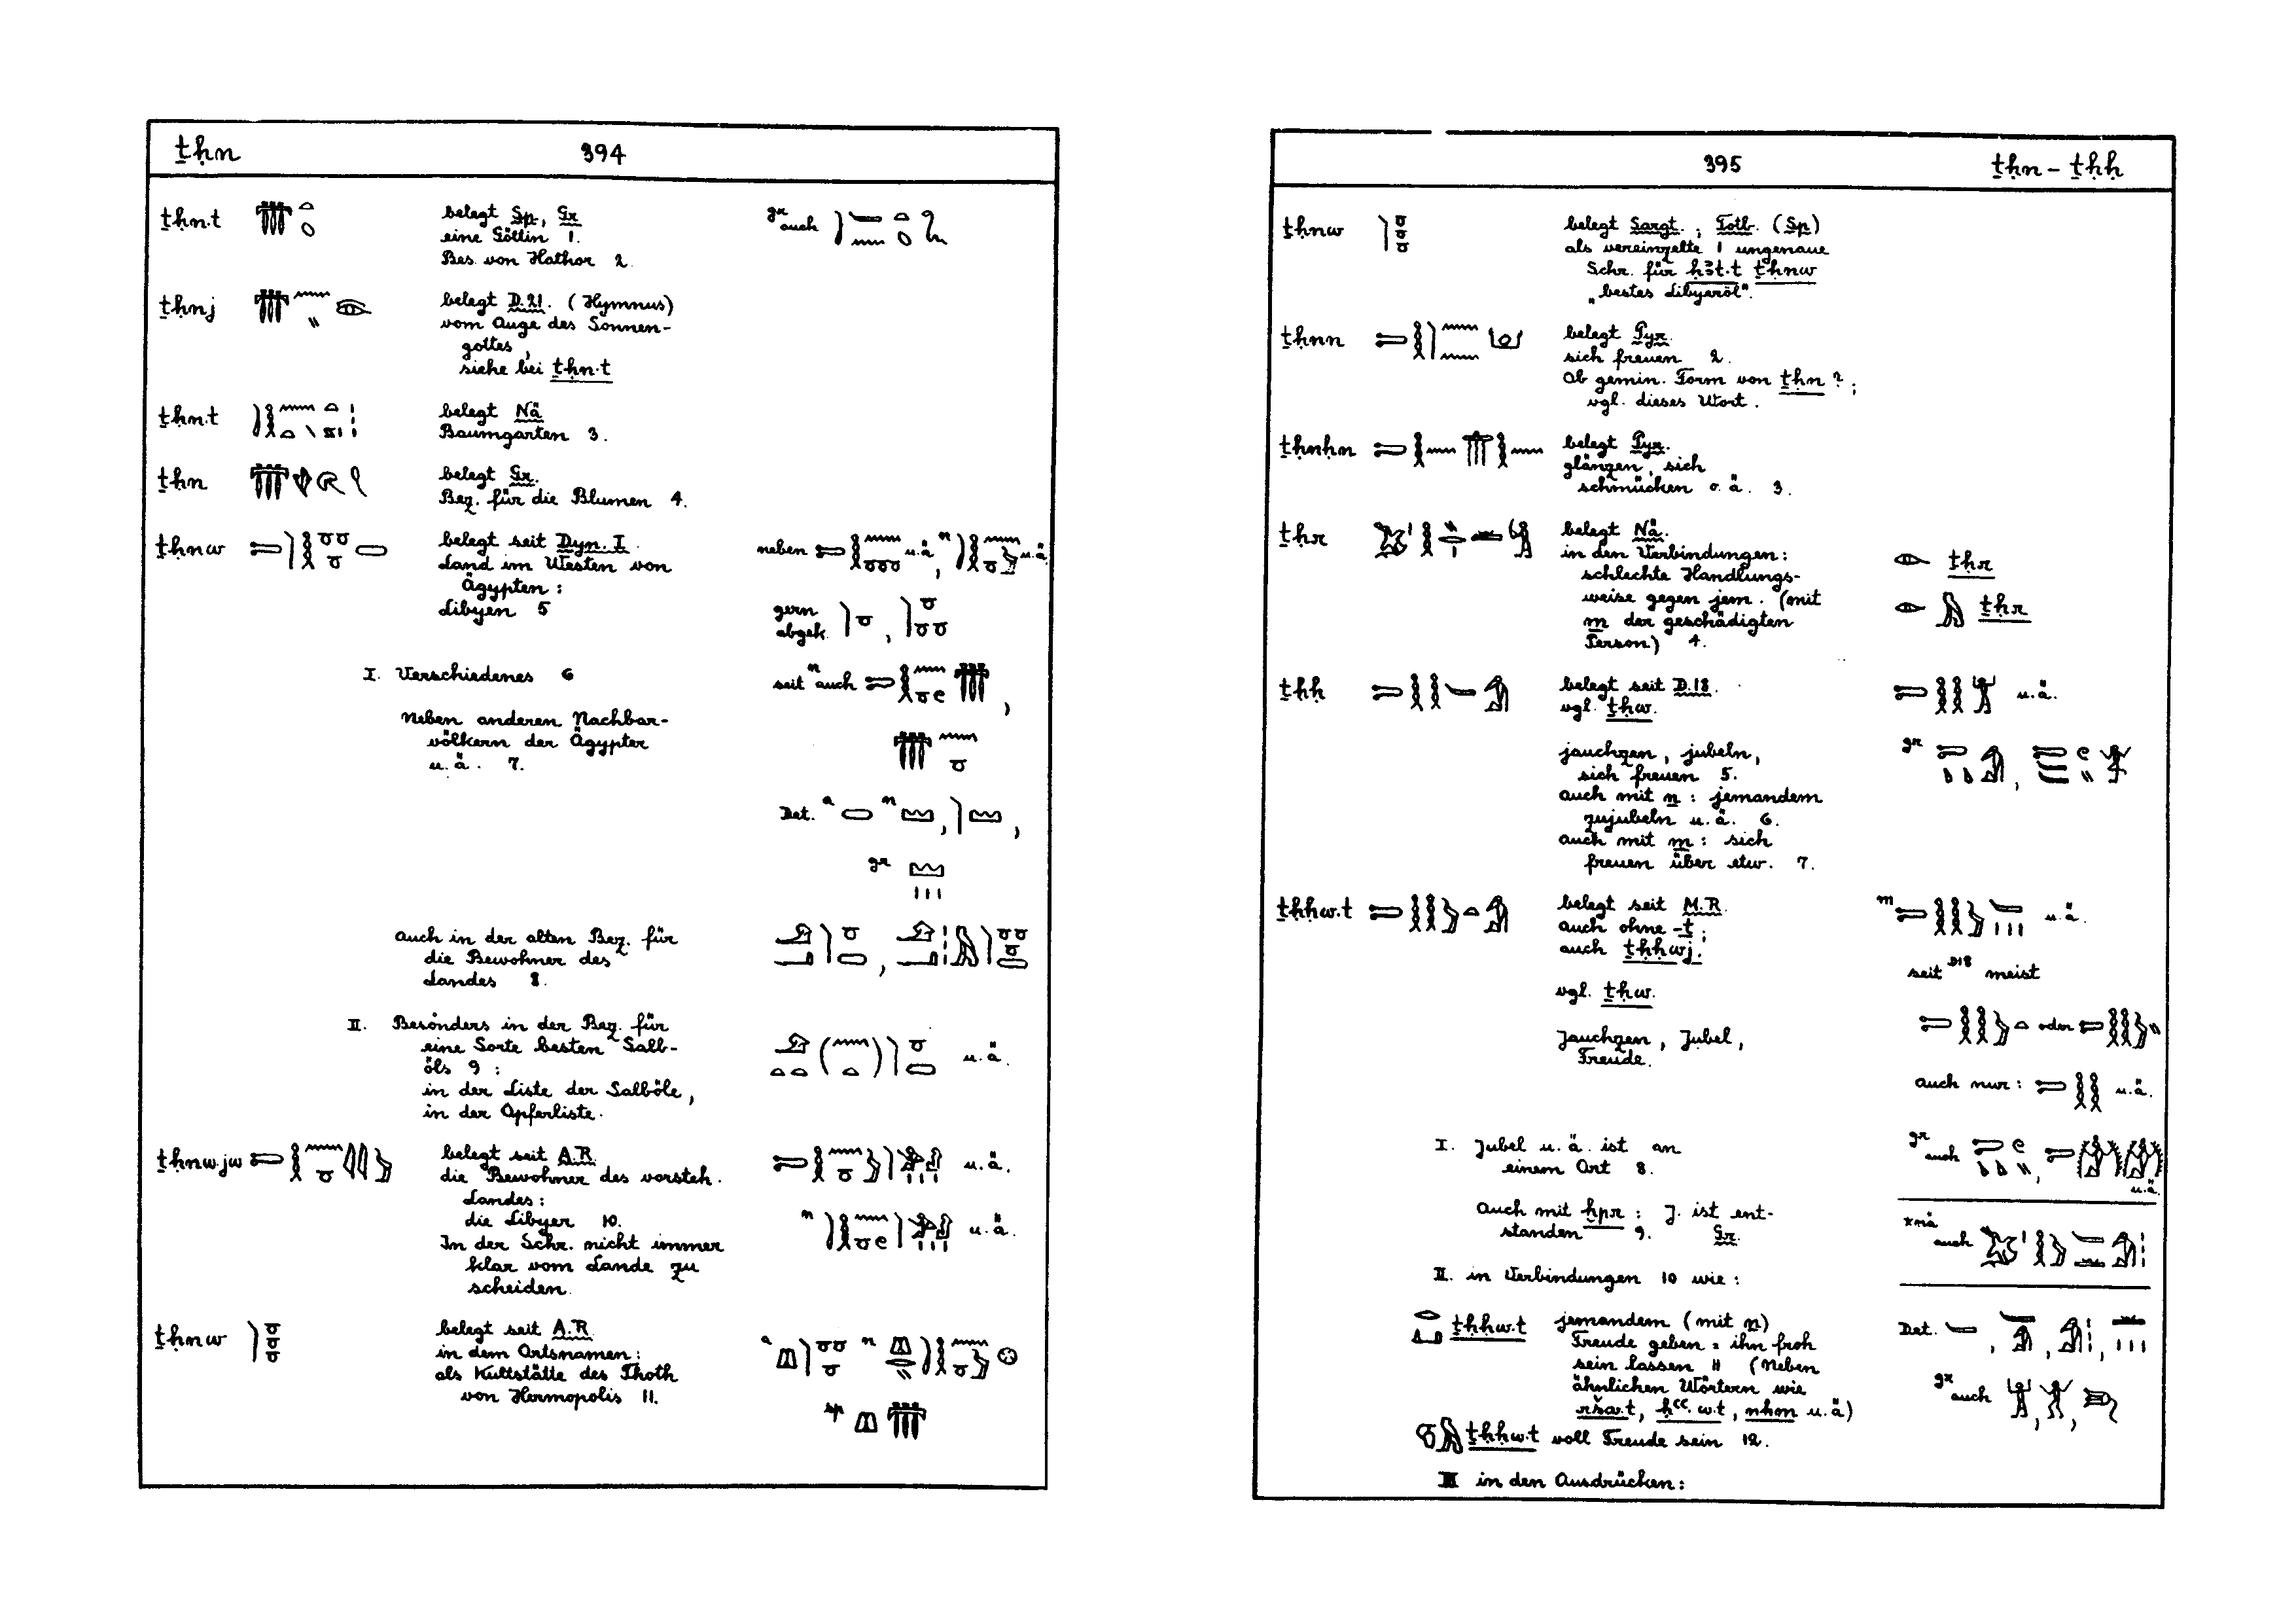 ṯḥn 394
ṯḥn.t belegt Sp, Gr gr auch
eine Göttin 1.
Bes. von Hathor 2.
ṯḥnj belegt D.21. (Hymnus)
vom Auge des Sonnen-
gottes,
siehe bei ṯḥn.t
ṯḥn.t belegt Nä
Baumgarten 3.
ṯḥn belegt Gr.
Bez. für die Blumen 4.
ṯḥnw belegt seit Dyn. I neben u.ä, n u.ä.
Land im Westen von
Ägypten:
Libyen 5
gern
abgek. ,
I. Verschiedenes 6
seit n auch ,
neben anderen Nachbar-
völkern der Ägypter
u.ä. 7.
Det. a n , ,
gr
auch in der alten Bez. für
die Bewohner des
Landes 8.
II. Besonders in der Bez. für
eine Sorte besten Salb-
öls 9: ( ) u.ä.
in der Liste der Salböle,
in der Opferliste.
ṯḥnw.jw belegt seit A.R. u.ä.
die Bewohner des vorsteh.
Landes:
die Libyer 10. n u.ä.
In der Schr. nicht immer
klar vom Lande zu
scheiden.
ṯḥnw belegt seit A.R. a n
in dem Ortsnamen:
als Kultstätte des Thoth
von Hermopolis 11.
sp
395 ṯḥn – ṯḥḥ
ṯḥnw belegt Sargt.; Totb. (Sp)
als vereinzelte 1 ungenaue
Schr. für ḥꜣt.t ṯḥnw
„bestes Libyeröl".
ṯḥnn belegt Pyr.
sich freuen 2.
Ob gemin. Form von ṯḥn?;
vgl. dieses Wort.
ṯḥnḥn belegt Pyr.
glänzen, sich
schmücken o.ä. 3.
ṯḥr belegt Nä.
in den Verbindungen: ṯḥr
schlechte Handlungs-
weise gegen jem. (mit ṯḥr
m der geschädigten
Person) 4.
ṯḥḥ belegt seit D.18. u.ä.
vgl. ṯḥw.
jauchzen, jubeln, gr ,
sich freuen 5.
auch mit n: jemandem
zujubeln u.ä. 6.
auch mit m: sich
freuen über etw. 7.
ṯḥḥw.t belegt seit M.R. m u.ä.
auch ohne -t;
auch ṯḥḥwj.
seit D18 meist
vgl. ṯḥw.
oder
Jauchzen, Jubel,
Freude.
auch nur: u.ä.
I. Jubel u.ä. ist an gr auch ,
einem Ort 8. u.ä.
Auch mit ḫpr: J. ist ent-
standen 9. Gr. *nä auch
II. in Verbindungen 10 wie:
ṯḥḥw.t jemandem (mit n) Det. , , ,
Freude geben = ihn froh
sein lassen 11 (Neben
ähnlichen Wörtern wie gr auch , ,
ršw.t, ḥꜥꜥ.w.t, nhm u.ä)
ṯḥḥw.t voll Freude sein 12.
III in den Ausdrücken: